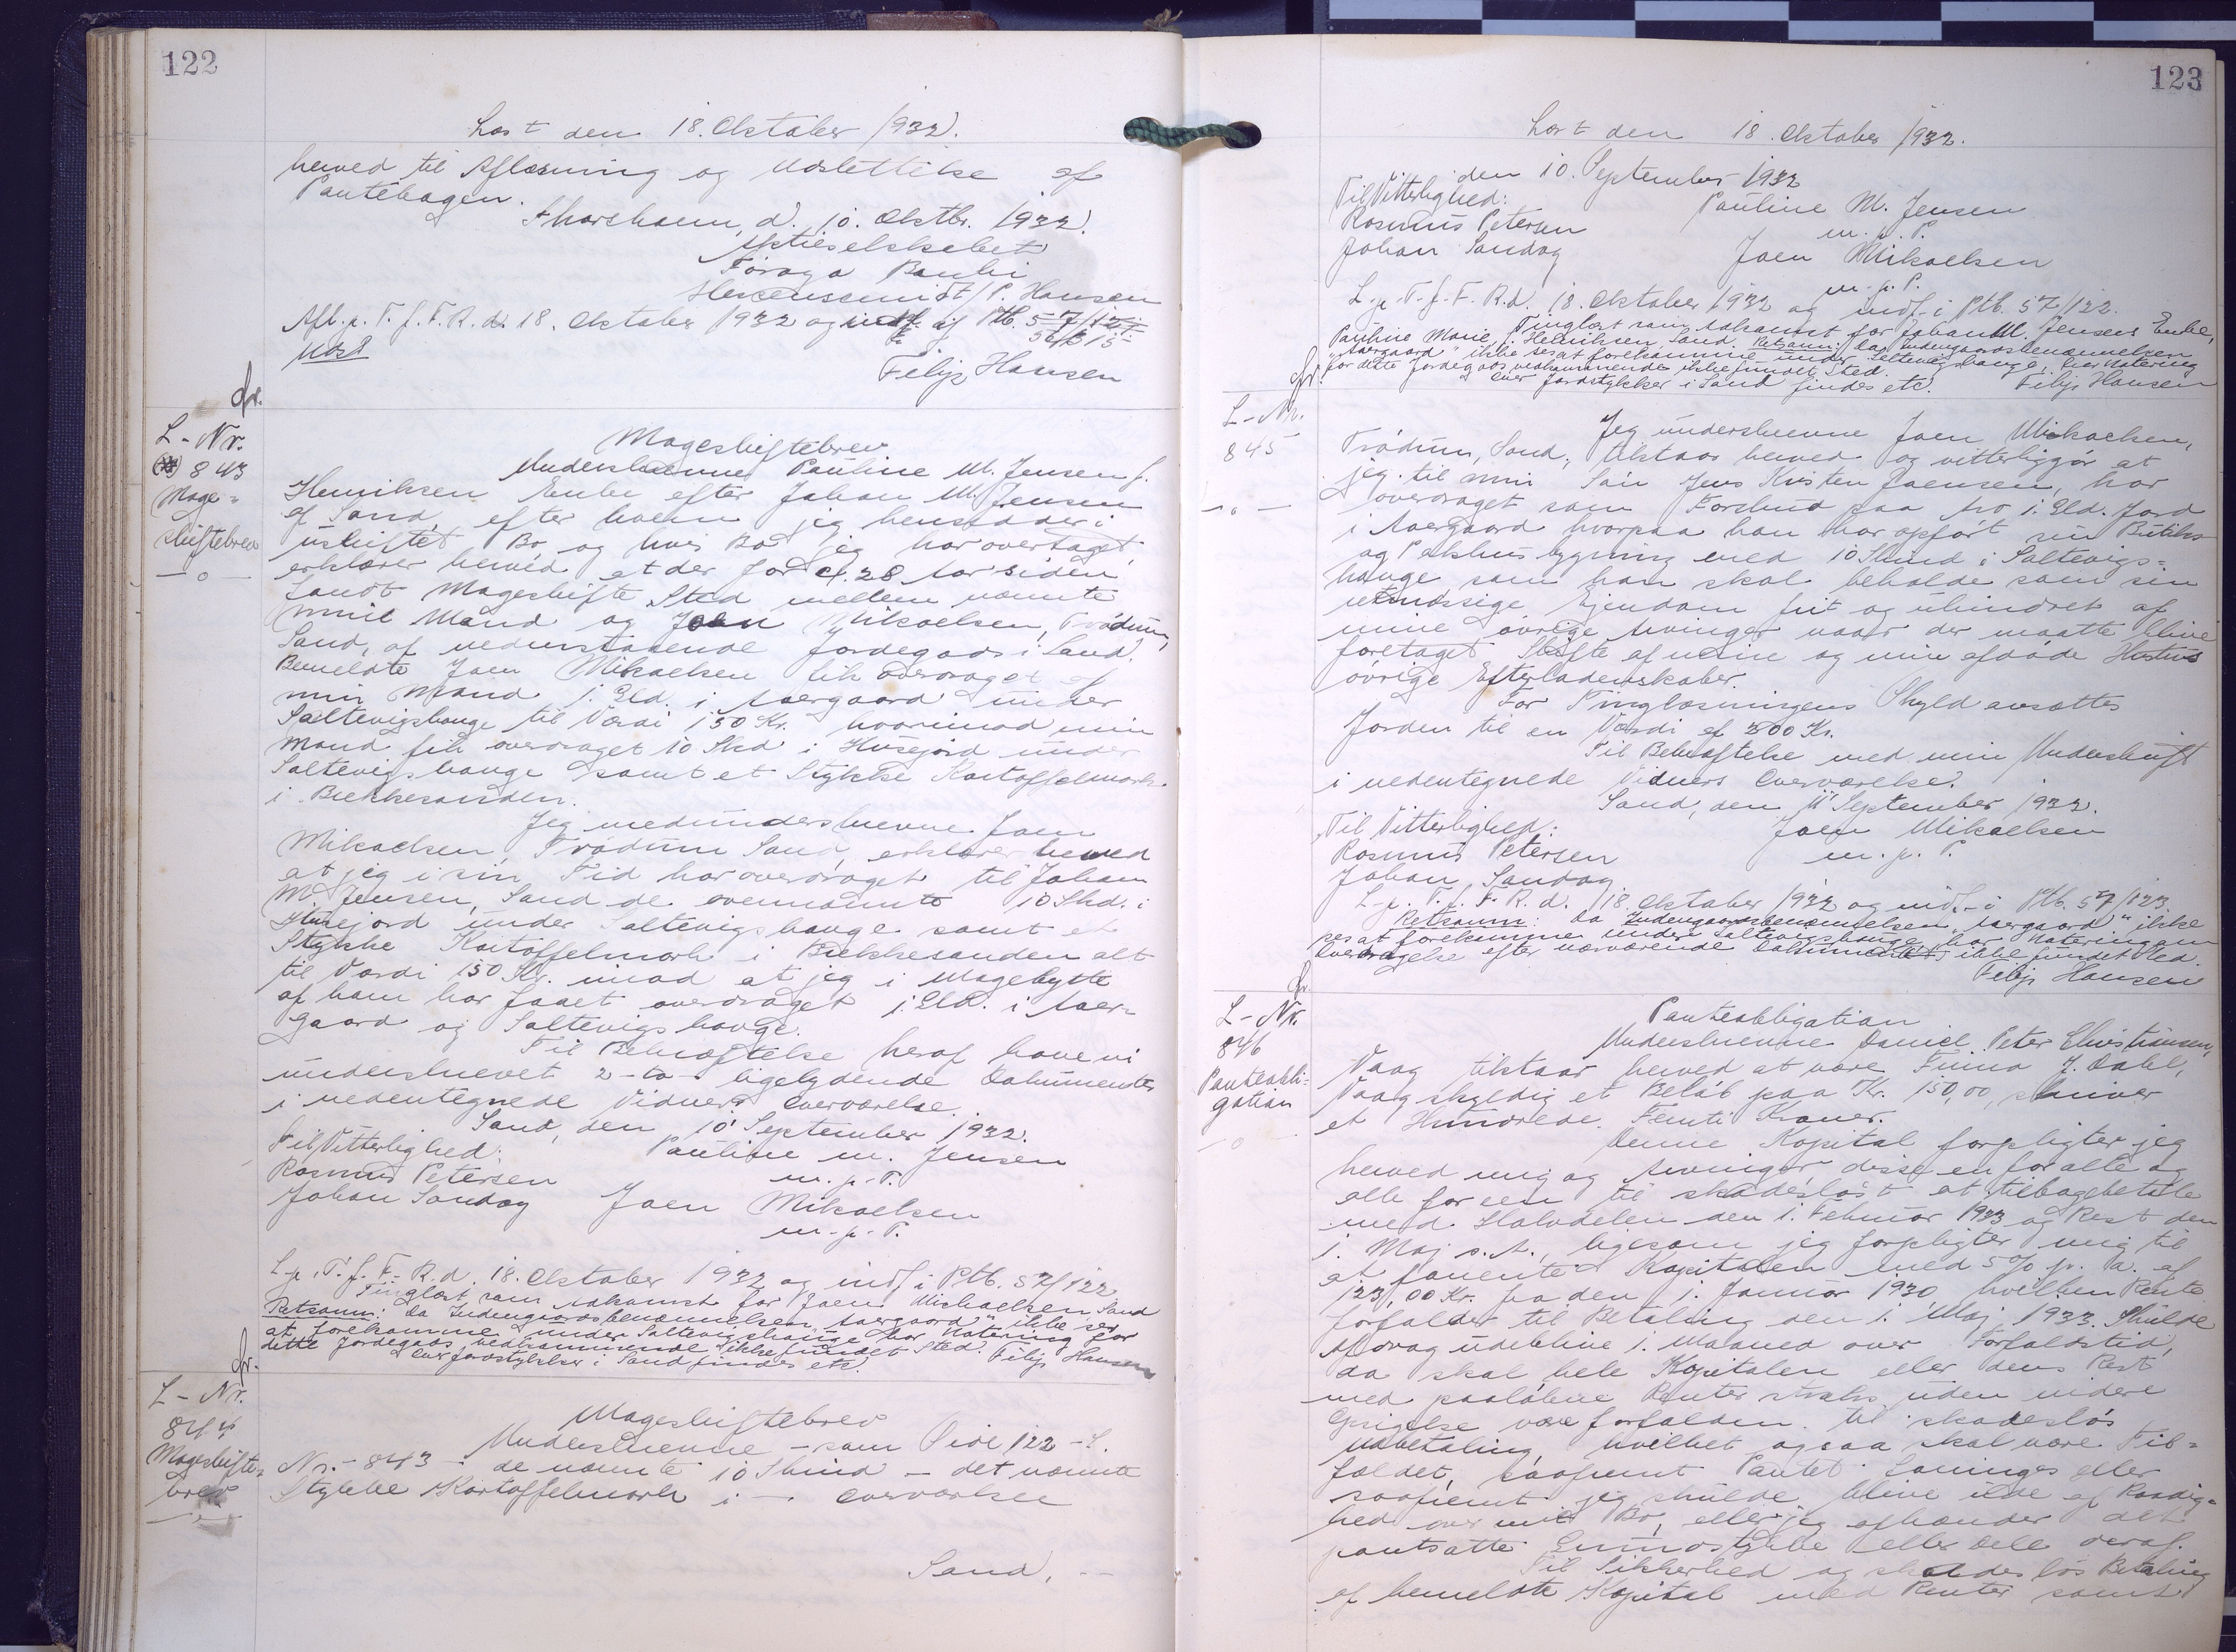 122
Læst den 18. Oktober 1932.
herved til Aflæsning og Udslettelse af
Pantebogen.
Thorshavn, d. 10. Oktbr. 1932.
Aktieselskabet
Føroya Banki
/ P. Hansen
Afl. p. T. f. F. R. d. 18. Oktober 1932 og indf. af Ptb. 57/121
Udsl
Filip Hansen
fr.
L-Nr.
843
Mage=
skiftebrev
—o—
Mageskiftebrev
Underskrevne Pauline M. Jensen f.
Henriksen Enke efter Johan M. Jensen
af Sand, efter hvem jeg hensidder i
uskiftet Bo og hvis Bo jeg har overtaget,
erklærer herved at der for c. 28 Aar siden
fandt Mageskifte Sted mellem nævnte
min Mand og Joen Mikaelsen, Trödum,
Sand, af nedenstaaende Jordegods i Sand.
Bemeldte Joen Mikaelsen fik overdraget af
min Mand 1. Gld. i Aaergaard under
Saltevigshauge til Værdi 150 Kr. hvorimod min
Mand fik overdraget 10 Skd i Húsejord under
Saltevigshauge samt et Stykke Kartoffelmark
i Bekkesanden.
Jeg medunderskrevne Joen
Mikaelsen, Trödum Sand, erklærer herved
at jeg i sin Tid har overdraget til Johan
M. Jensen, Sand de ovennævnte 10 Skd. i
Húsejord under Saltevigshauge samt et
Stykke Kartoffelmark i Bekkesanden alt
til Værdi 150 Kr. imod at jeg i Magebytte
af ham har faaet overdraget 1. Gld. i Aaer=
gaard og Saltevigshauge.
Til Bekræftelse heraf have vi
underskrevet 2-to- ligelydende Dokumenter
i nedentegnede Vidners Overværelse.
Sand, den 10' September 1932.
Til Vitterlighed: Pauline M. Jensen
Rasmus Petersen m. p. P.
Johan Sandoy Joen Mikaelsen
m. p. P.
L. p. T. f. F. R. d. 18. Oktober 1932 og indf. i Ptb. 57/122
Tinglæst som Adkomst for Joen Michaelsen Sand
Retsanm: Da Indengaardsbenævnelsen "Aaergaard" ikke ses
at forekomme under Saltevigshauge har Notering for
dette Jordegods vedkommende ikke fundet Sted.
over Jordstykker i Sand findes etc. Filip Hansen
fr.
L-Nr.
844
Mageskifte=
brev
—„—
Mageskiftebrev
Underskrevne - som Side 122 - L.
Nr. - 843 - de nævnte 10 Skind - det nævnte
Stykke Kartoffelmark i - Overværelse
Sand, --
123
Læst den 18. Oktober 1932.
den 10. September 1932
Til Vitterlighed: Pauline M. Jensen
Rasmus Petersen m. p. P.
Johan Sandoy Joen Mikaelsen
m. p. P.
L. p. T. f. F. R. d. 18. Oktober 1932 og indf. i Ptb. 57/122.
Tinglæst som Adkomst for Johan M. Jensens Enke,
Pauline Marie, f. Henriksen, Sand. Retsanm: Da Indengaardsbenævnelsen
"Aaergaard" ikke ses at forekomme under Saltevigshauge, har Notering
for dette Jordegods vedkommende ikke fundet Sted.
over Jordstykker i Sand findes etc. Filip Hansen
fr.
L-Nr.
845
—„—
Jeg underskrevne Joen Mikaelsen,
Trödum, Sand, tilstaar herved og vitterliggør at
jeg til min Søn Jens Kristen Joensen, har
overdraget som Forskud paa Arv 1. Gld. Jord
i Aaergaard hvorpaa han har opført sin Butiks
og Pakhusbygning med 10 Skind i Saltevigs=
hauge som han skal beholde som sin
retmæssige Ejendom frit og uhindret af
mine øvrige Arvinger naar der maatte blive
foretaget Skifte af mine og min afdøde Hustrus
øvrige Efterladenskaber.
For Tinglæsningens Skyld ansættes
Jorden til en Værdi af 300 Kr.
Til Bekræftelse med min Underskrift
i nedentegnede Vidners Overværelse.
Sand, den 11' September 1932.
Til Vitterlighed: Joen Mikaelsen
Rasmus Petersen m. p. P.
Johan Sandoy
L. p. T. f. F. R. d. 18. Oktober 1932 og indf. i Ptb. 57/123.
Retsanm: Da Indengaardsbenævnelsen "Aaergaard" ikke
ses at forekomme under Saltevigshauge, har Notering om
Overdragelse efter nærværende Dokument ikke fundet Sted.
Filip Hansen
fr.
L-Nr.
846
Panteobli=
gation
—o—
Panteobligation
Underskrevne Daniel Peter Christiansen,
Vaag tilstaar herved at være Firma J. Dahl,
Vaag skyldig et Beløb paa Kr. 150,00, skriver
et Hundrede Femti Kroner.
Denne Kapital forpligter jeg
herved mig og Arvinger disse en for alle og
alle for een til skadesløst at tilbagebetale
med Halvdelen den 1. Februar 1933 og Rest den
1. Maj s. A., ligesom jeg forpligter mig til
at forrente Kapitalen med 5% p. A. af
123,00 Kr. fra den 1. Januar 1930 hvilken Rente
forfalder til Betaling den 1. Maj 1933. Skulde
Afdrag udeblive 1. Maaned over Forfaldstid,
da skal hele Kapitalen eller dens Rest
med paaløbne Renter straks uden videre
Opsigelse være forfalden til skadesløs
Udbetaling, hvilket ogsaa skal være Til=
fældet, saafremt Pantet forringes eller
saafremt jeg skulde blive ude af Raadig=
hed over mit Bo, eller jeg afhænder det
pantsatte Grundstykke eller Dele deraf.
Til Sikkerhed og skadesløs Betaling
af bemeldte Kapital med Renter samt